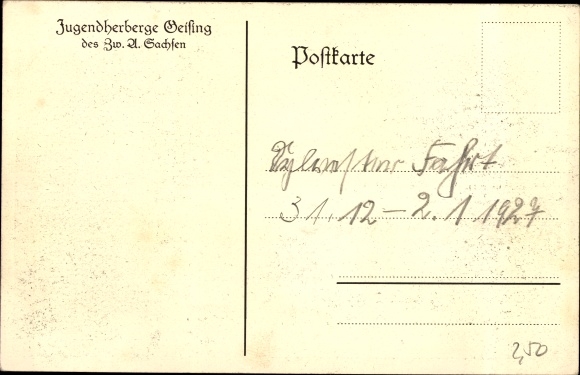 Jugendherberge Geising
des Zw. A. Sachsen
Postkarte
Sylvester Fahrt
31. 12 – 2. 1. 1927
2,50